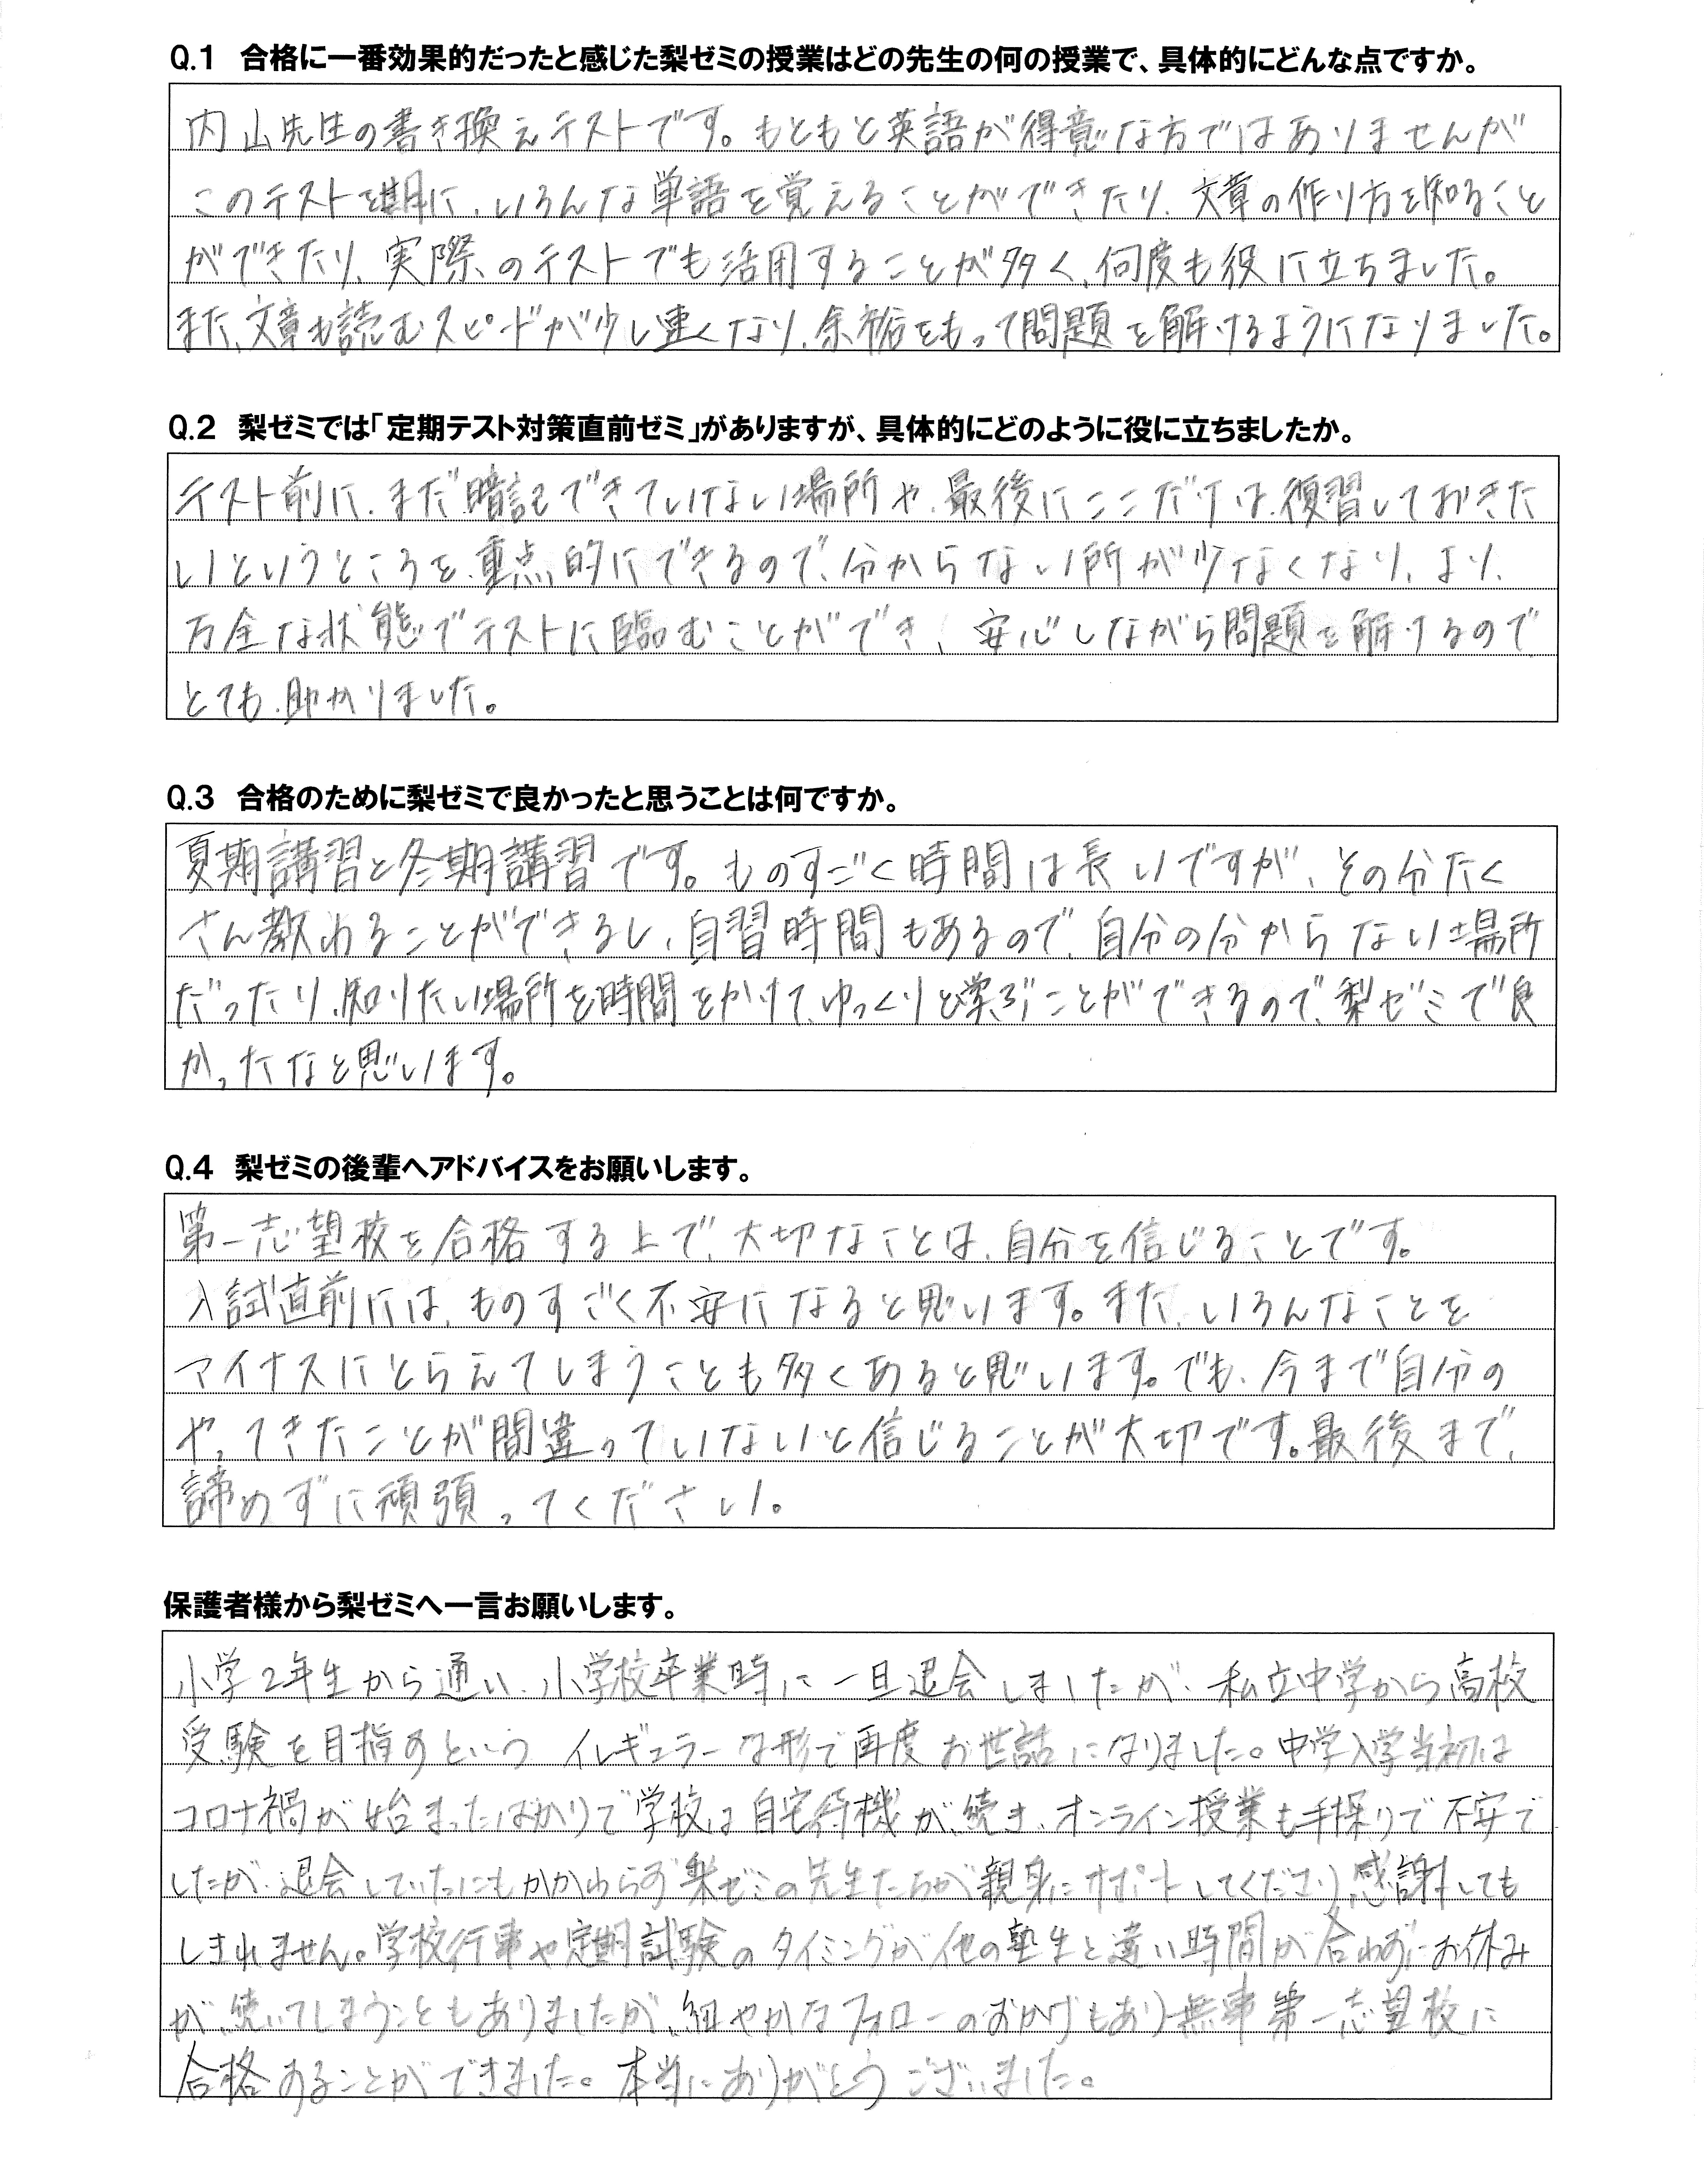 Q.1 合格に一番効果的だったと感じた梨ゼミの授業はどの先生の何の授業で、具体的にどんな点ですか。
内山先生の書き換えテストです。もともと英語が得意な方ではありませんが
このテストを期に、いろんな単語を覚えることができたり、文章の作り方を知ること
ができたり、実際のテストでも活用することが多く、何度も役に立ちました。
また、文章も読むスピードが少し速くなり、余裕をもって問題を解けるようになりました。
Q.2 梨ゼミでは「定期テスト対策直前ゼミ」がありますが、具体的にどのように役に立ちましたか。
テスト前に、まだ暗記できていない場所や、最後にここだけは、復習しておきた
いというところを、重点的にできるので、分からない所が少なくなり、より、
万全な状態でテストに臨むことができ、安心しながら問題を解けるので
とても、助かりました。
Q.3 合格のために梨ゼミで良かったと思うことは何ですか。
夏期講習と冬期講習です。ものすごく時間は長いですが、その分たく
さん教わることができるし、自習時間もあるので、自分の分からない場所
だったり、知りたい場所を時間をかけて、ゆっくりと学ぶことができるので、梨ゼミで良
かったなと思います。
Q.4 梨ゼミの後輩へアドバイスをお願いします。
第一志望校を合格する上で、大切なことは、自分を信じることです。
入試直前には、ものすごく不安になると思います。また、いろんなことを
マイナスにとらえてしまうことも多くあると思います。でも、今まで自分の
やってきたことが間違っていないと信じることが大切です。最後まで、
諦めずに頑張ってください。
保護者様から梨ゼミへ一言お願いします。
小学2年生から通い、小学校卒業時に一旦退会しましたが、私立中学から高校
受験を目指すという イレギュラーな形で再度お世話になりました。中学入学当初は
コロナ禍が始まったばかりで学校は自宅待機が続き、オンライン授業も手探りで不安で
したが、退会していたにもかかわらず梨ゼミの先生たちが親身にサポートしてくださり感謝しても
しきれません。学校行事や定期試験のタイミングが他の塾生と違い時間が合わずにお休み
が続いてしまうこともありましたが、細やかなフォローのおかげもあり無事第一志望校に
合格することができました。本当にありがとうございました。